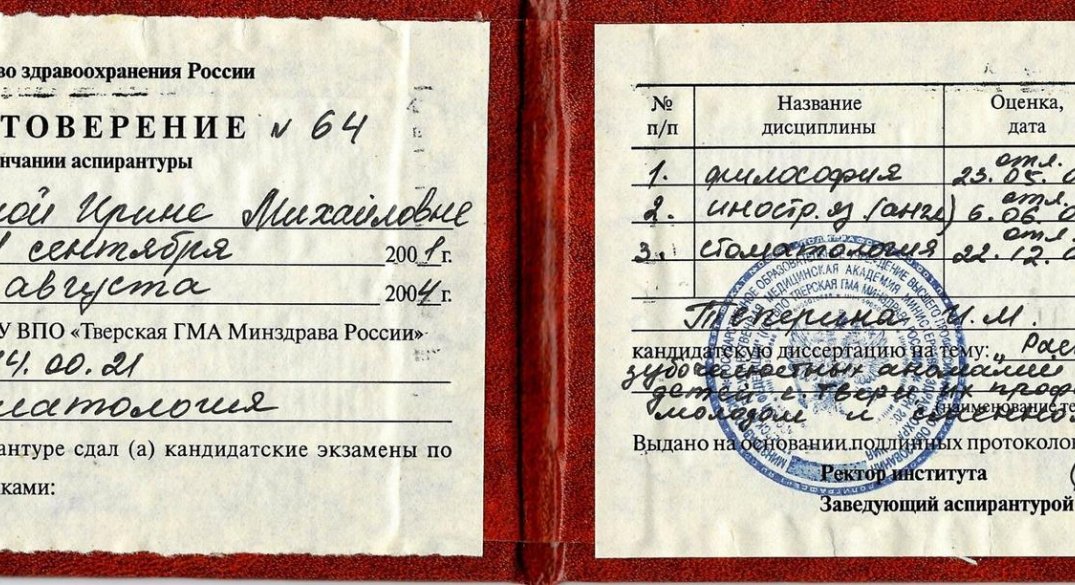 во здравоохранения России
ТОВЕРЕНИЕ № 64
нчании аспирантуры
ной Ирине Михайловне
1 сентября 2001 г.
августа 2004 г.
У ВПО «Тверская ГМА Минздрава России»
14.00.21
матология
антуре сдал (а) кандидатские экзамены по
ками:
№ п/п Название дисциплины Оценка, дата
1. философия отл. 23.05.0
2. иностр. яз. (англ) отл. 6.06.0
3. стоматология отл. 22.12.0
Теперина И.М.
кандидатскую диссертацию на тему: „Рас
зубочелюстных аномалий
детей г. Твери, их проф
молодом и сменно
(наименование те
Выдано на основании подлинных протоколо
Ректор института
Заведующий аспирантурой